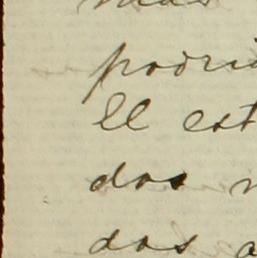 mas
podri
ll est
dos
dos a